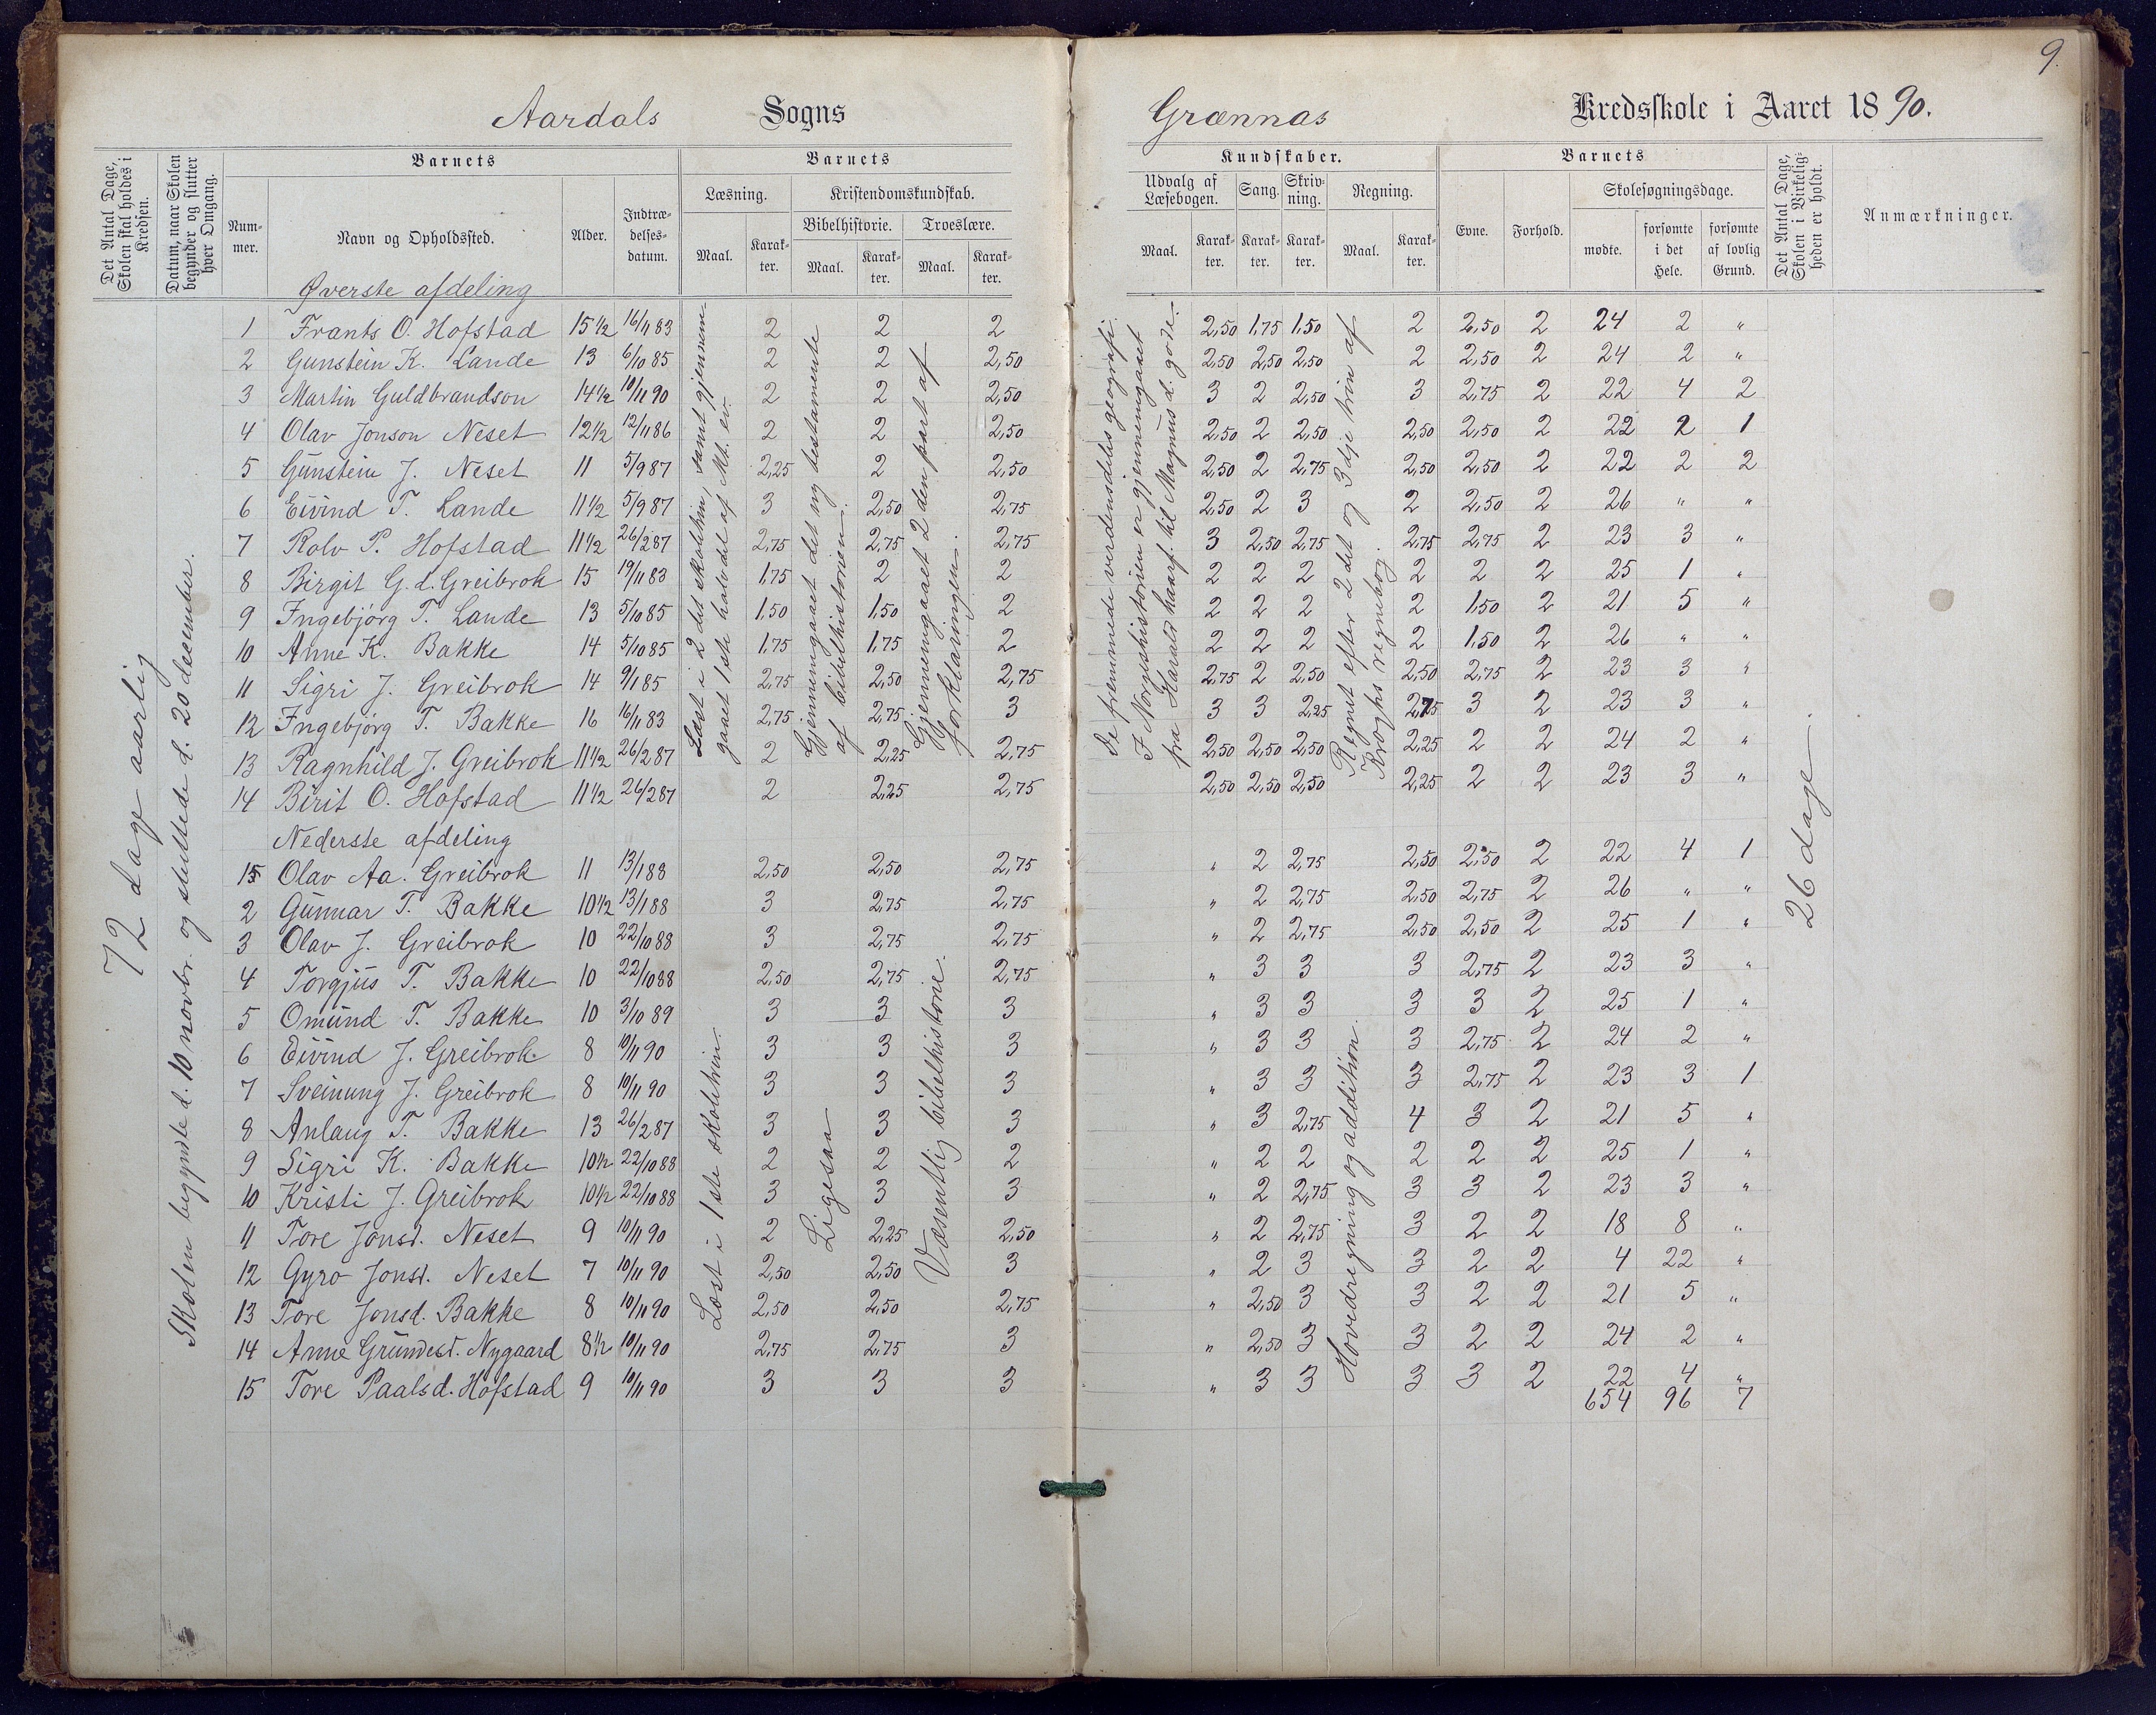 9.
Aardals Sogns Grænnas Kredsskole i Aaret 1890.
Det Antal Dage, Skolen skal holdes i Kredsen.
Datum, naar Skolen begynder og slutter hver Omgang.
Barnets
Nummer.
Navn og Opholdssted.
Alder.
Indtrædelsesdatum.
Barnets
Læsning.
Kristendomskundskab.
Bibelhistorie.
Troeslære.
Maal. Karakter. Maal. Karakter. Maal. Karakter.
Kundskaber.
Udvalg af Læsebogen. Sang. Skrivning. Regning.
Maal. Karakter. Karakter. Karakter. Maal. Karakter.
Barnets
Evne. Forhold. Skolesøgningsdage.
mødte. forsømte i det Hele. forsømte af lovlig Grund.
Det Antal Dage, Skolen i Virkeligheden er holdt.
Anmærkninger.
72 dage aarlig
Skolen begyndte d. 10 novbr. og sluttede d. 20 december.
Læst i 2 det skoletrin, samt gjennemgaaet 1ste halvdel af Mt. ev.
Gjennemgaaet det ny testamente af bibelhistorien.
Gjennemgaaet 2 den part af forklaringen.
De fremmede verdensdeles geografi.
I Norgeshistorien er gjennemgaaet fra Harald haarf. til Magnus d. gode.
Regnet efter 2 det og 3 dje trin af Kroghs regnebog.
26 dage.
Øverste afdeling
1 Frants O. Hofstad 15 1/2 16/11 83 2 2 2 2,50 1,75 1,50 2 2,50 2 24 2 "
2 Gunstein K. Lande 13 6/10 85 2 2 2,50 2,50 2,50 2,50 2 2,50 2 24 2 "
3 Martin Guldbrandson 14 1/2 10/11 90 2 2 2,50 3 2 2,50 3 2,75 2 22 4 2
4 Olav Jonson Neset 12 1/2 12/11 86 2 2 2,50 2,50 2 2,50 2,50 2,50 2 22 2 1
5 Gunstein J. Neset 11 5/9 87 2,25 2 2,50 2,50 2 2,75 2,50 2,50 2 22 2 2
6 Eivind T. Lande 11 1/2 5/9 87 3 2,50 2,75 2,50 2 3 2 2,50 2 26 " "
7 Rolv P. Hofstad 11 1/2 26/2 87 2,75 2,75 2,75 3 2,50 2,75 2,75 2,75 2 23 3 "
8 Birgit G. d. Greibrok 15 19/11 83 1,75 2 2 2 2 2 2 2 2 25 1 "
9 Ingebjörg T. Lande 13 5/10 85 1,50 1,50 2 2 2 2 2 1,50 2 21 5 "
10 Anne K. Bakke 14 5/10 85 1,75 1,75 2 2 2 2 2 1,50 2 26 " "
11 Sigri J. Greibrok 14 9/1 85 2,75 2,50 2,75 2,75 2 2,50 2,50 2,75 2 23 3 "
12 Ingebjörg T. Bakke 16 16/11 83 2,75 2,75 3 3 3 2,25 2,75 3 2 23 3 "
13 Ragnhild J. Greibrok 11 1/2 26/2 87 2 2,25 2,75 2,50 2,50 2,50 2,25 2 2 24 2 "
14 Birit O. Hofstad 11 1/2 26/2 87 2 2,25 2,75 2,50 2,50 2,50 2,25 2 2 23 3 "
Nederste afdeling
Læst i 1ste skoletrin.
Ligesaa
Væsentlig bibelhistorie.
Hovedregning og addition.
1 Olav Aa. Greibrok 11 13/1 88 2,50 2,50 2,75 " 2 2,75 2,50 2,50 2 22 4 1
2 Gunnar T. Bakke 10 1/2 13/1 88 3 2,75 2,75 " 2 2,75 2,50 2,75 2 26 " "
3 Olav J. Greibrok 10 22/10 88 3 2,75 2,75 " 2 2,75 2,50 2,50 2 25 1 "
4 Torgjus T. Bakke 10 22/10 88 2,50 2,75 2,75 " 3 3 3 2,75 2 23 3 "
5 Omund T. Bakke 10 3/10 89 3 3 3 " 3 3 3 3 2 25 1 "
6 Eivind J. Greibrok. 8 10/11 90 3 3 3 " 3 3 3 2,75 2 24 2 "
7 Sveinung J. Greibrok 8 10/11 90 3 3 3 " 3 3 3 2,75 2 23 3 1
8 Anlaug T. Bakke 13 26/2 87 3 3 3 " 3 2,75 4 3 2 21 5 "
9 Sigri K. Bakke 10 1/2 22/10 88 2 2 2 " 2 2 2 2 2 25 1 "
10 Kristi J. Greibrok 10 1/2 22/10 88 3 3 3 " 2 2,75 3 3 2 23 3 "
11 Tore Jonsd. Neset 9 10/11 90 2 2,25 2,50 " 2 2,75 3 2 2 18 8 "
12 Gyro Jonsd. Neset 7 10/11 90 2,50 2,50 3 " 2 3 3 2 2 4 22 "
13 Tore Jonsd. Bakke 8 10/11 90 2,50 2,50 2,75 " 2,50 3 3 2 2 21 5 "
14 Anne Grundesd. Nygaard 8 1/2 10/11 90 2,75 2,75 3 " 2,50 3 3 2 2 24 2 "
15 Tore Paalsd. Hofstad 9 10/11 90 3 3 3 " 3 3 3 3 2 22 4 "
654 96 7